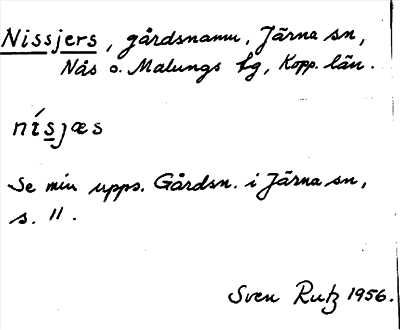 Nissjers, gårdsnamn, Järna sn,
Nås o. Malungs tg, Kopp. län.
nísjæs
Se min upps. Gårdsn. i Järna sn,
s. 11.
Sven Rutz 1956.